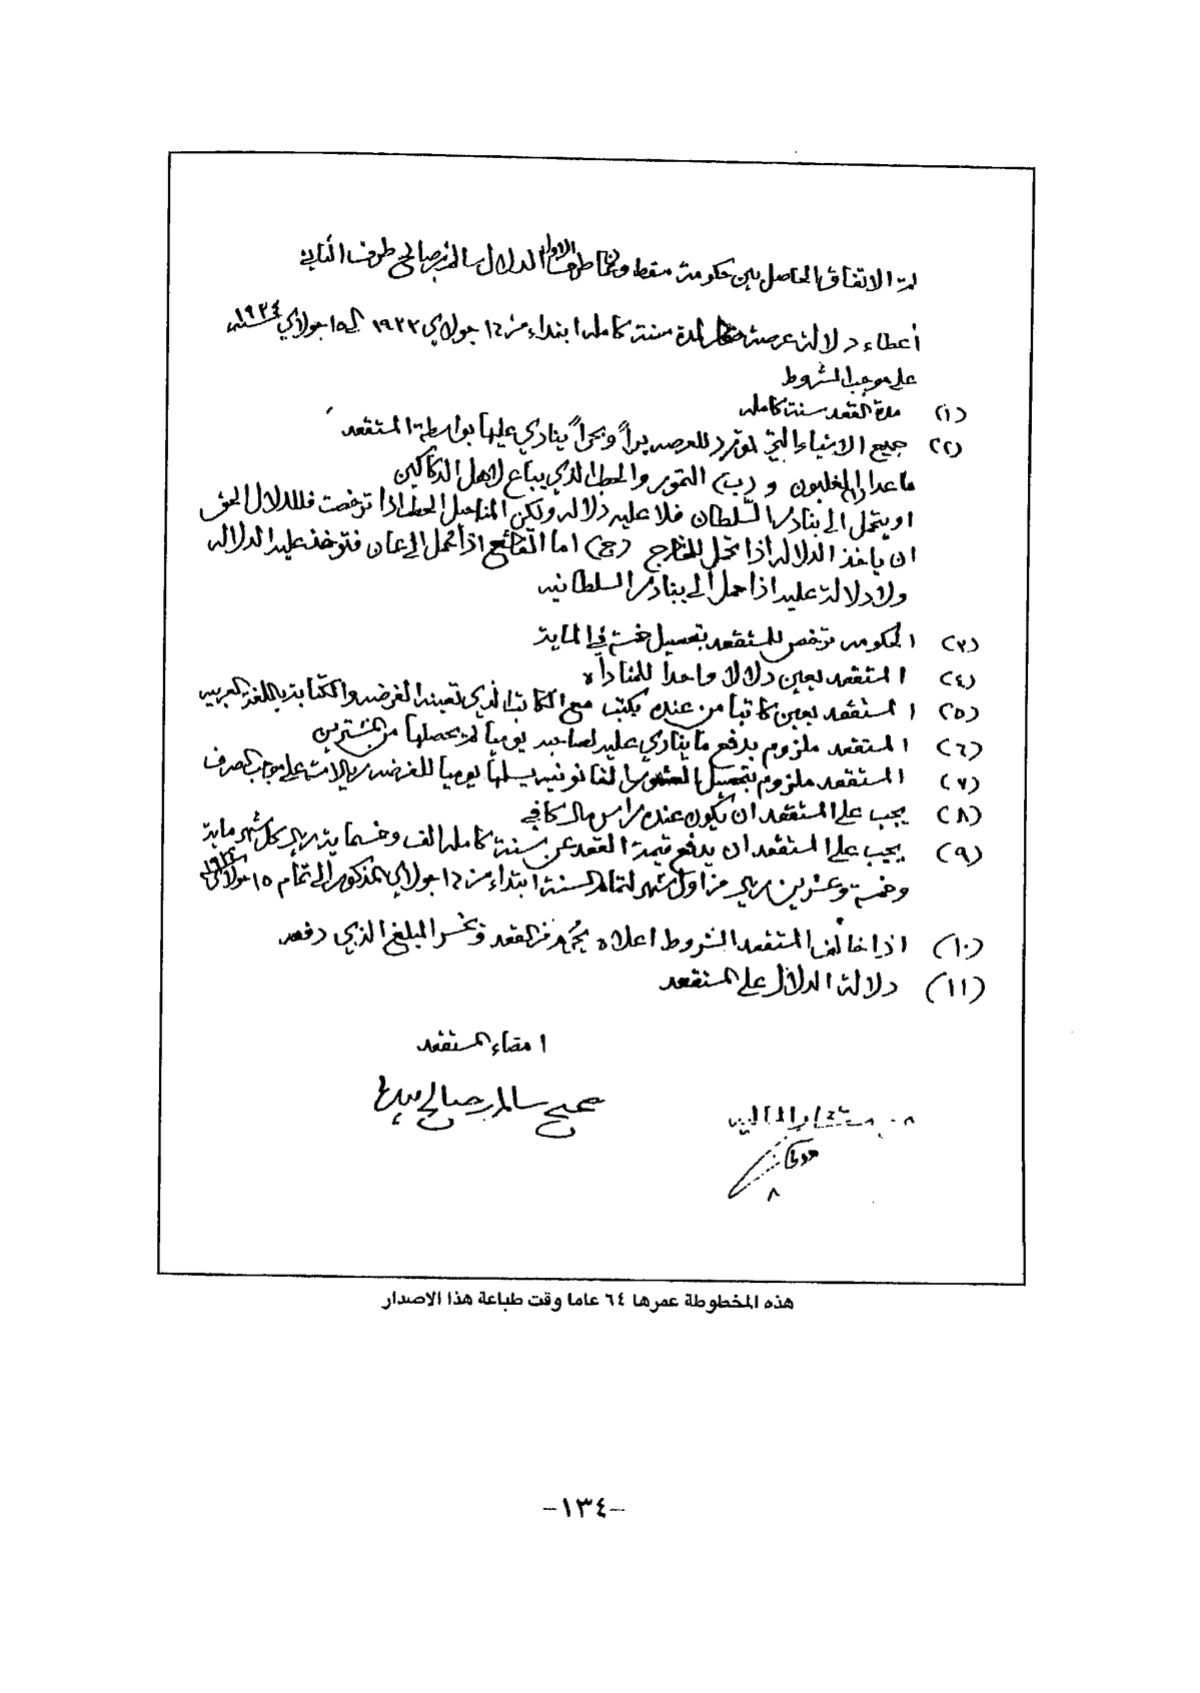 تم الاتفاق الحاصل بين حكومة مسقط وعمان طرف الاول الدلال سالم بن صالح طرف الثاني
أعطاء دلالة عرصة لمدة سنة كاملة ابتداء من ١٦ جولاي ١٩٣٣ الى ١٥ جولاي سنة ١٩٣٤
على موجب الشروط
(١) مدة القعد سنة كامله
(٢) جميع الاشياء التي تورد للعرصه براً وبحراً ينادي عليها بواسطة المستقعد
ما عدا (ا) و (ب) التمور والحطب الذي يباع لاهل الدكاكين
او يحمل الى بنادر السلطان فلا عليه دلاله ولكن الحطب اذا ترخصت فللدلال الحق
ان ياخذ الدلاله اذا تحمل للخارج (ج) اما اذا تحمل الى عمان فتوخذ عليه الدلاله
ولا دلالة عليه اذا حمل الى بنادر السلطانيه
(٣) الحكومه ترخص للمستقعد بتحصيل خمسة في الماية
(٤) المستقعد يعين دلالا واحدا للمناداه
(٥) المستقعد يعين كاتبا من عنده يكتب مع الكاتب الذي تعينه الفرضه والكتابة باللغة العربيه
(٦) المستقعد ملزوم بدفع ما ينادي عليه لصاحبه يومياً ثم يحصلها من المشترين
(٧) المستقعد ملزوم بتحصيل العشور القانونيه يسلمها يومياً للفرضه ريالات على موجب الصرف
(٨) يجب على المستقعد ان يكون عنده راس مال كافي
(٩) يجب على المستقعد ان يدفع قيمة القعد عن سنة كامله الف وخسماية ريال كل شهر ماية
وخمسة وعشرين ريال من اول شهر لتمام السنة ابتداء من ١٦ جولاي المذكور الى تمام ١٥ جولاي ١٩٣٤
(١٠) اذا خالف المستقعد الشروط اعلاه القعد ويخسر المبلغ الذي دفعه
(١١) دلالة الدلال على المستقعد
امضاء المستقعد
صحيح سالم بن صالح بيده
مستشار المالية
هذه المخطوطة عمرها ٦٤ عاما وقت طباعة هذا الاصدار
-١٣٤-